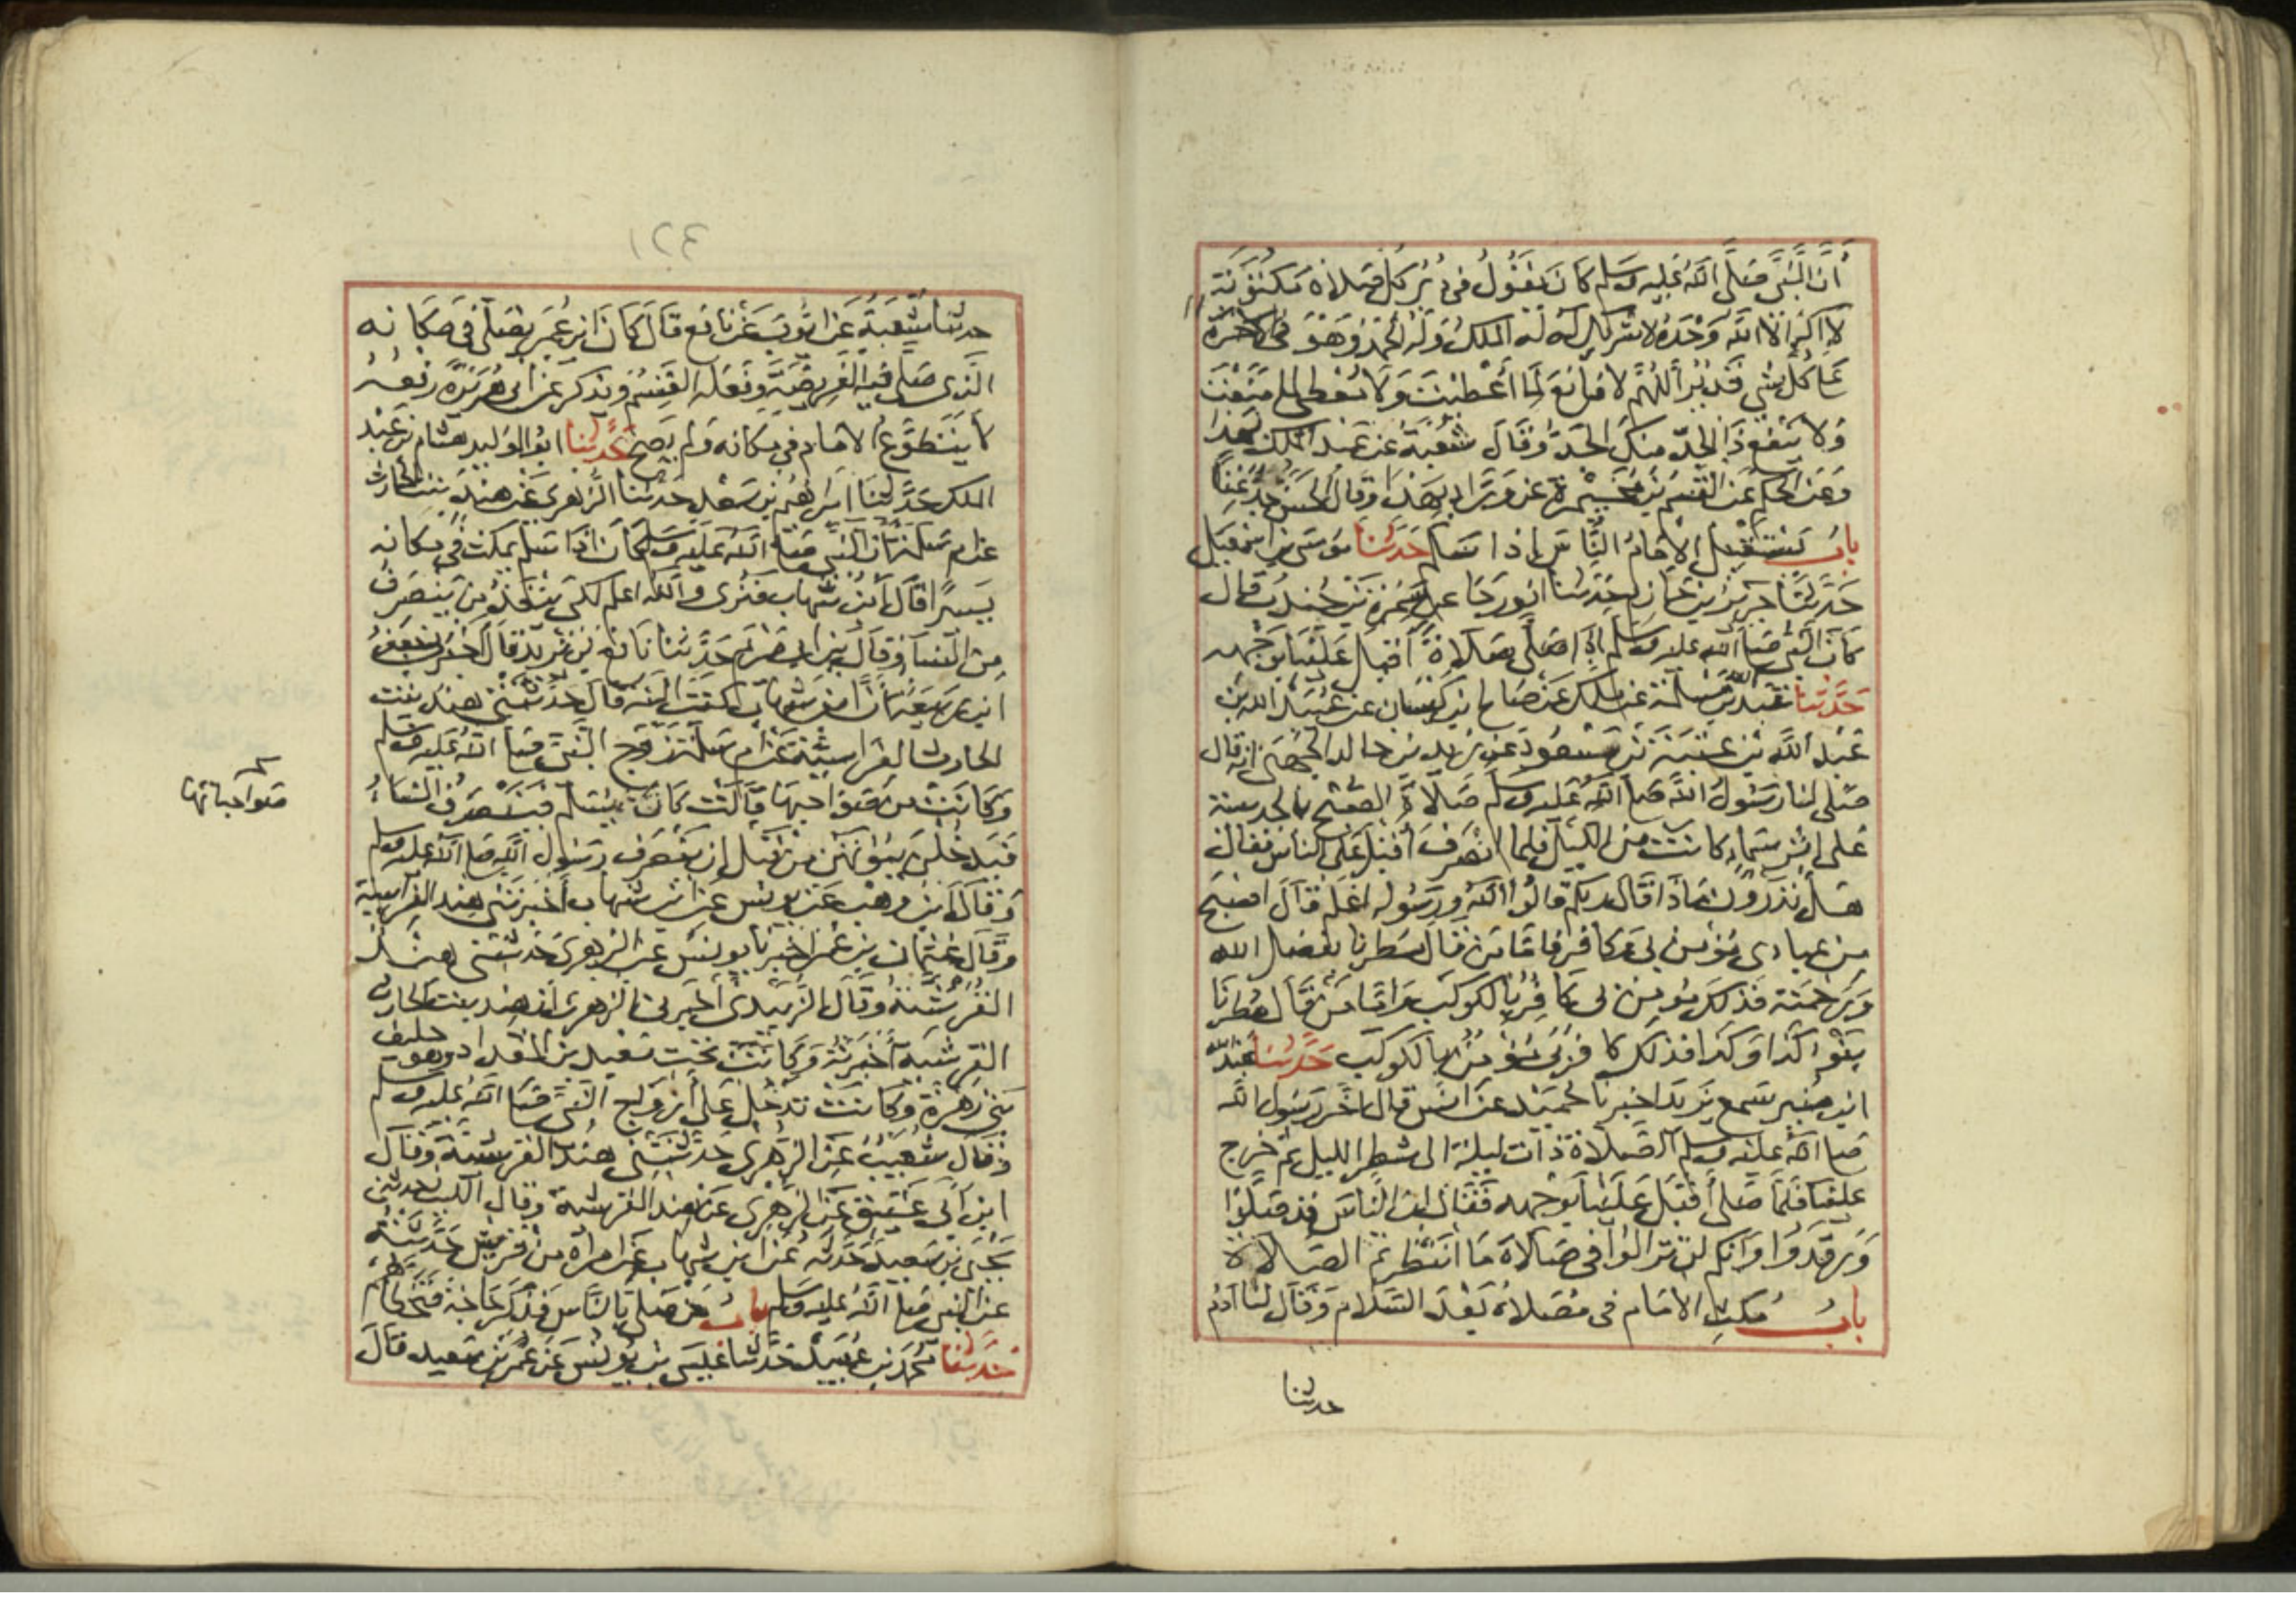 أن النبي صلى الله عليه وسلم كان يقول في دبر كل صلاة مكتوبة
لا إله إلا الله وحده لا شريك له له الملك وله الحمد وهو
على كل شي قدير اللهم لا مانع لما أعطيت ولا معطي لما منعت
ولا ينفع ذا الجد منك الجد وقال شعبة عن عبد الملك بهذا
وعن الحكم عن القسم بن مخيمرة عن وراد بهذا وقال الحسن جد غنا
باب يستقبل الإمام الناس إذا سلم حدثنا موسى بن اسمعيل
حدثنا جرير بن حازم حدثنا ابو رجا عن سمرة بن جندب قال
كان النبي صلى الله عليه وسلم إذا صلى صلاة أقبل علينا بوجهه
حدثنا عبد الله بن مسلمة عن ملك عن صالح بن كيسان عن عبيد الله بن
عبد الله بن عتبة بن مسعود عن زيد بن خالد الجهني انه قال
صلى لنا رسول الله صلى الله عليه وسلم صلاة الصبح بالحديبية
على إثر سماء كانت من الليل فلما انصرف أقبل على الناس فقال
هل تدرون ماذا قال ربكم قالوا الله ورسوله اعلم قال اصبح
من عبادي مؤمن بي وكافر فاما من قال مطرنا بفضل الله
ورحمته فذلك مؤمن بي كافر بالكوكب واما من قال مطرنا
بنو كذا وكذا فذلك كافر بي مؤمن بالكوكب حدثنا عبد الله
ابن منير سمع يزيد اخبرنا حميد عن انس قال اخر رسول الله
صلى الله عليه وسلم الصلاة ذات ليلة الى شطر الليل ثم خرج
علينا فلما صلى أقبل علينا بوجهه فقال ان الناس قد صلوا
ورقدوا وانكم لن تزالوا في صلاة ما انتظرتم الصلاة
باب مكث الامام في مصلاه بعد السلام وقال لنا آدم
حدثنا
٣٢١
حدثنا شعبة عن ايوب عن نافع قال كان ابن عمر يصلي في مكانه
الذي صلى فيه الفريضة وفعله القسم ويذكر عن ابي هريرة رفعه
لا يتطوع الامام في مكانه ولم يصح حدثنا ابو الوليد هشام بن عبد
الملك حدثنا ابراهيم بن سعد حدثنا الزهري عن هند بنت الحارث
عن ام سلمة أن النبي صلى الله عليه وسلم كان اذا سلم يمكث في مكانه
يسيرا قال ابن شهاب فنرى والله اعلم لكي ينفذ من ينصرف
من النسا وقال ابن ابي مريم حدثنا نافع بن يزيد قال اخبرني جعفر
ابن ربيعة ان ابن شهاب كتب اليه قال حدثتني هند بنت
الحارث الفراسية عن ام سلمة زوج النبي صلى الله عليه وسلم
وكانت من صواحبها قالت كان يسلم فينصرف النساء
فيدخلن بيوتهن من قبل ان ينصرف رسول الله صلى الله عليه وسلم
وقال ابن وهب عن يونس عن ابن شهاب أخبرتني هند الفراسية
وقال عثمان بن عمر اخبرنا يونس عن الزهري حدثتني هند
القرشية وقال الزبيدي أخبرني الزهري ان هند بنت الحارث
القرشية أخبرته وكانت تحت معبد بن المقداد وهو حليف
بني زهرة وكانت تدخل على أزواج النبي صلى الله عليه وسلم
وقال شعيب عن الزهري حدثتني هند القرشية وقال
ابن أبي عتيق عن الزهري عن هند الفراسية وقال الليث حدثني
يحيى بن سعيد حدثه عن ابن شهاب عن امرأة من قريش حدثته
عن النبي صلى الله عليه وسلم باب من صلى بالناس فذكر حاجة فتخطاهم
حدثنا محمد بن عبيد حدثنا عيسى بن يونس عن عمر بن سعيد قال
صواحباتها